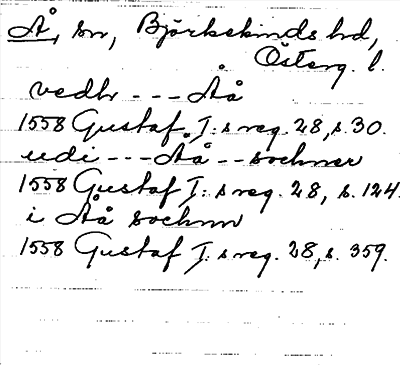 Å, sn, Björkekinds hd,
Österg. l.
vedhr --- Aå
1558 Gustaf I: s reg. 28, s. 30.
udi --- Aå -- sochner
1558 Gustaf I: s reg. 28, s. 124.
i Aå sochnn
1558 Gustaf I: s reg. 28, s. 359.